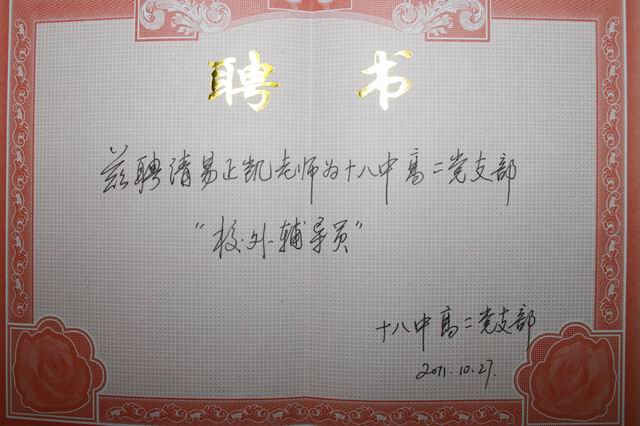 聘书
兹聘请易正凯老师为十八中高二党支部
“校外辅导员”
十八中高二党支部
2011.10.27.